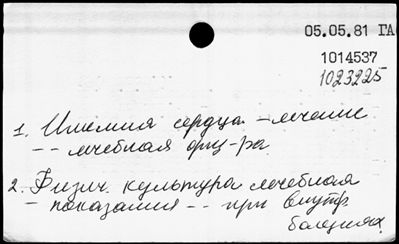 05.05.81 ГА
1014537
1023225
1. Ишемия сердца - лечение
-- лечебная физ-ра
2. Физич. культура лечебная
- показания -- при внутр.
болезнях